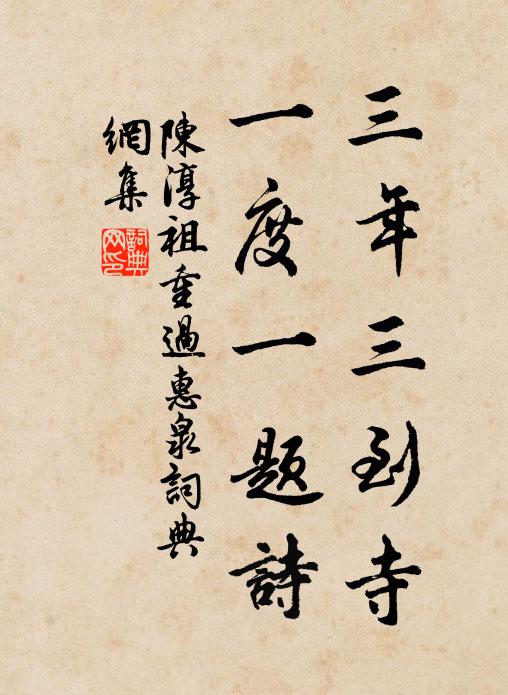 三年三到寺
一度一题詩
陳淳祖重過惠泉詞典
網集
詞典
网印